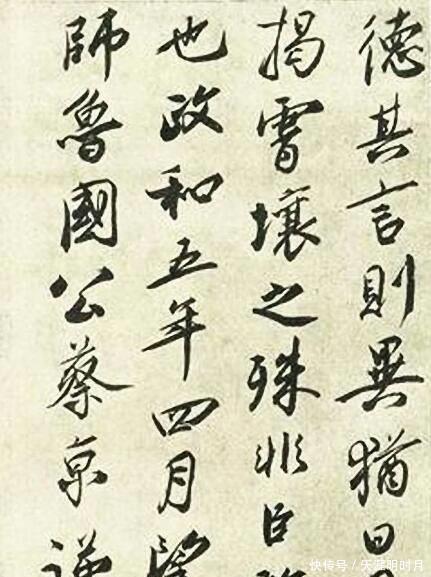 德其言則異猶日
揭霄壤之殊非臣
也政和五年四月
師魯國公蔡京謹
快传号/天涯明时月